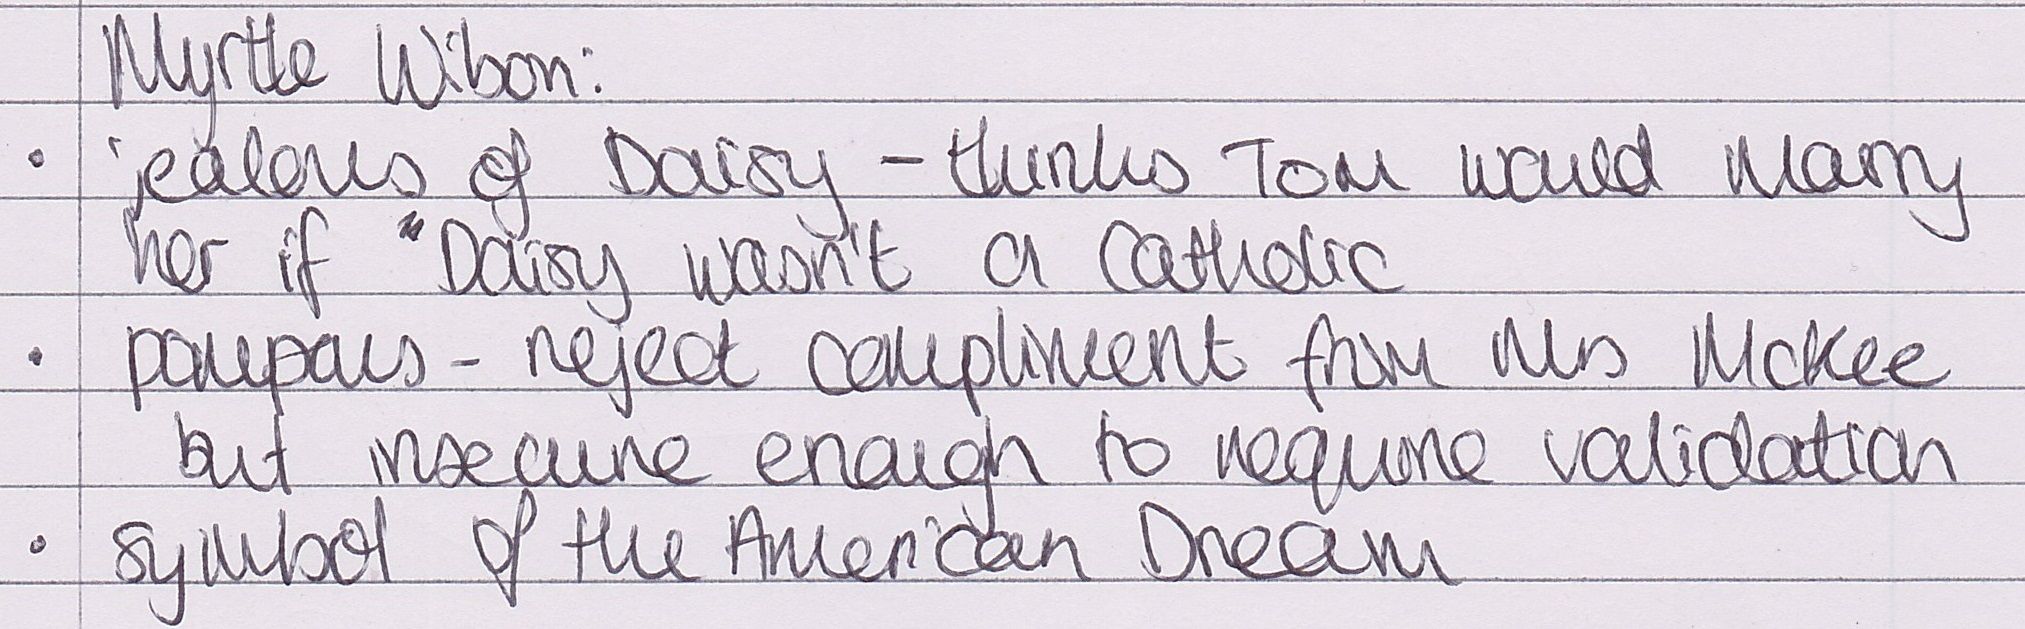 Myrtle Wilson:
• jealous of Daisy – thinks Tom would marry
her if "Daisy wasn't a Catholic
• pompous - reject compliment from Mrs McKee
but insecure enough to require validation
• symbol of the American Dream